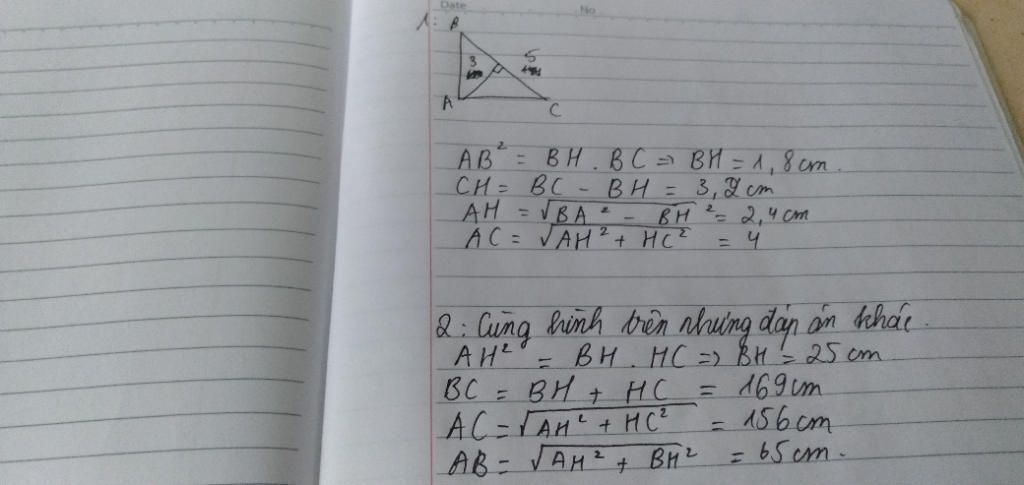 Date No
1: B
3 5
cm cm
A C
AB² = BH . BC => BH = 1,8cm.
CH = BC - BH = 3,2cm
AH = √BA² - BH² = 2,4cm
AC = √AH² + HC² = 4
2: Cũng hình trên nhưng đáp án khác.
AH² = BH . HC => BH = 25cm
BC = BH + HC = 169cm
AC = √AH² + HC² = 156cm
AB = √AH² + BH² = 65cm.